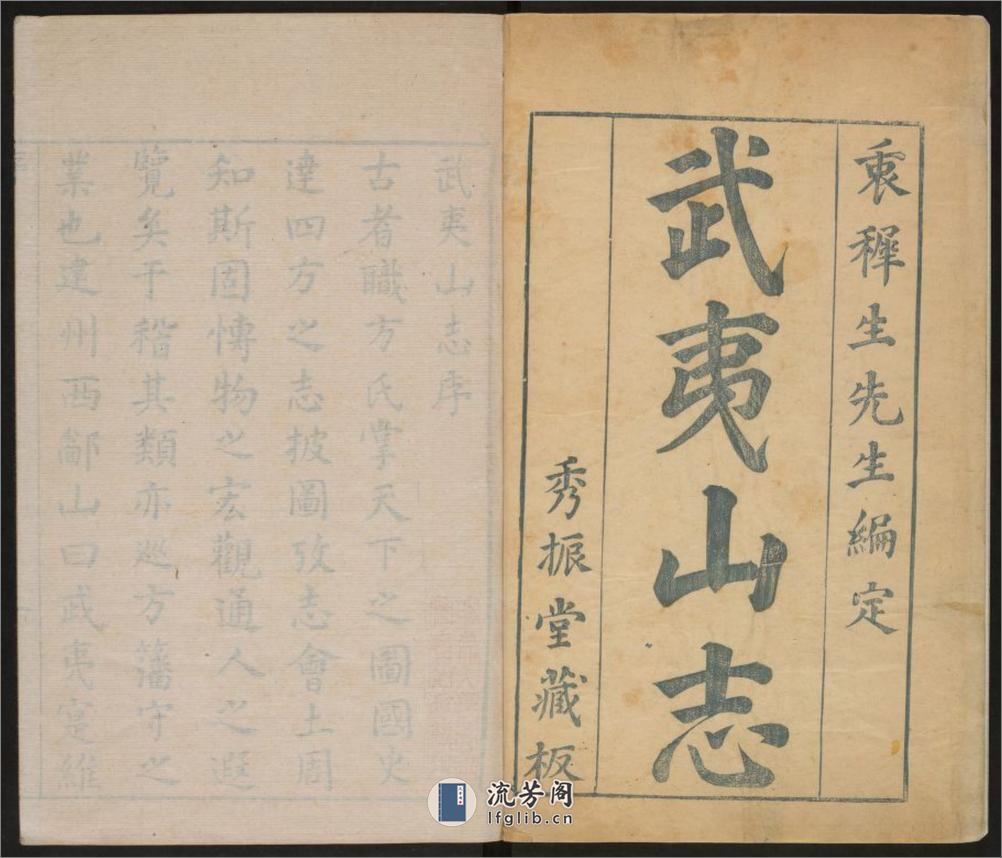 衷穉生先生編定
武夷山志
秀振堂藏板
武夷山志序
古者職方氏掌天下之圖國史
達四方之志披圖攷志會土周
知斯固愽物之宏觀通人之遐
覽矣于稽其類亦巡方藩守之
業也建州西鄙山曰武夷寔維
流芳阁
lfglib.cn